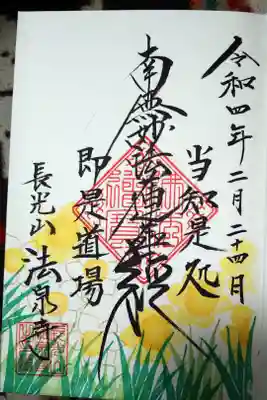 令和四年二月二十四日
当知是処
南無妙法蓮華経
即是道場
長光山 法泉寺